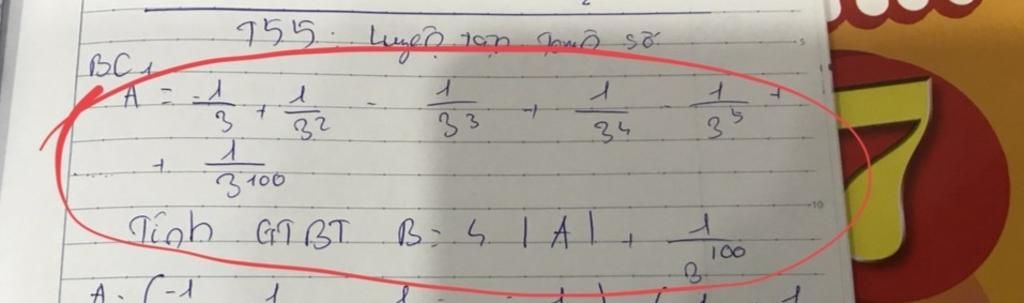 T55. Luyện tập
BC1
A = -1/3 + 1/3² - 1/3³ + 1/3⁴ - 1/3⁵ +
+ 1/3¹⁰⁰
Tính GTBT B = 4 |A| + 1/3¹⁰⁰
7